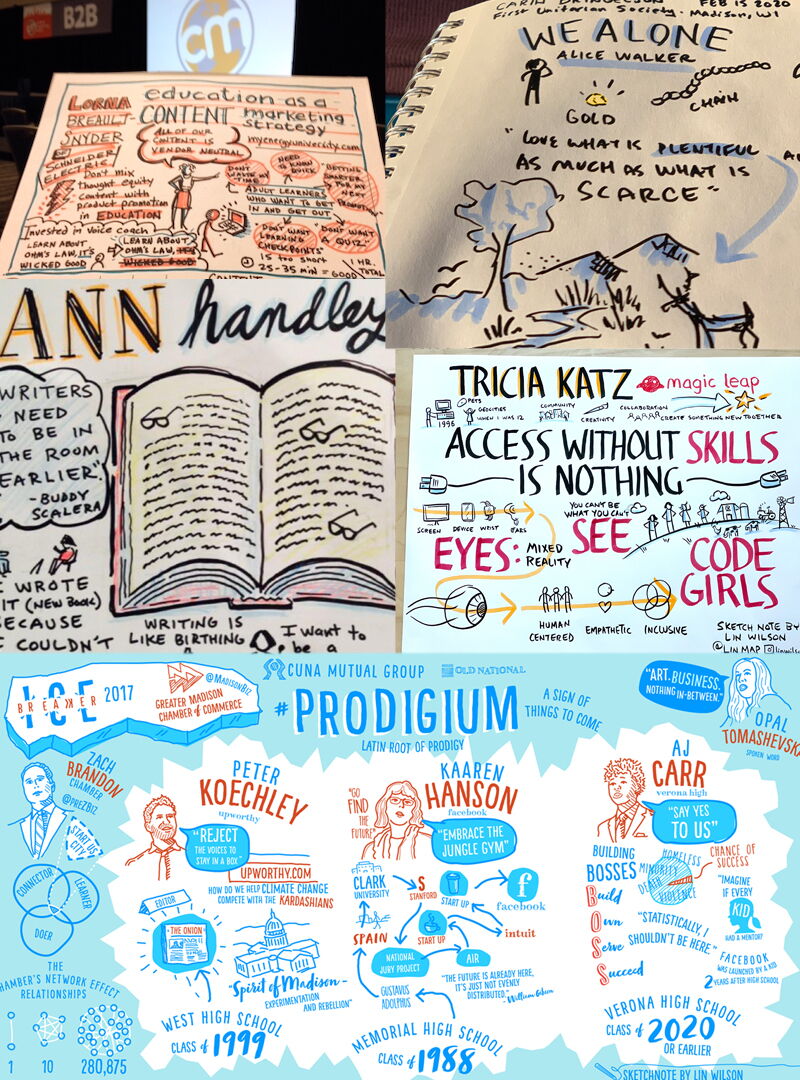 B2B
cm
LORNA
BREAULT-
SNYDER
of
SCHNEIDER
ELECTRIC
education as a
CONTENT marketing
strategy
myenergyuniversity.com
ALL OF OUR
CONTENT IS
VENDOR NEUTRAL
Don't mix
thought equity
content with
product promotion
in EDUCATION
DON'T
WASTE MY
TIME
NEED
TO KNOW
QUICK
"GETTING
SMARTER
FOR MY
NEXT
PROMOTION"
ADULT LEARNERS
WHO WANT TO GET
IN AND GET OUT
Invested in voice coach
LEARN ABOUT
OHM'S LAW, IT'S
WICKED GOOD
LEARN ABOUT
OHM'S LAW, IT'S
WICKED GOOD
DON'T WANT
LEARNING
CHECKPOINTS
"DON'T WANT
A QUIZ!"
15 too short
25-35 min = GOOD
1 HR.
TOTAL
CONTENT
CARIN BRINGELSON FEB 15 2020
First Unitarian Society - Madison, WI
WE ALONE
ALICE WALKER
GOLD
CHAIN
"LOVE WHAT IS PLENTIFUL
AS MUCH AS WHAT IS
SCARCE"
ANN handley
WRITERS
NEED
TO BE IN
THE ROOM
EARLIER"
-BUDDY
SCALERA
WROTE
IT (NEW BOOK)
BECAUSE
COULDN'T
WRITING IS
LIKE BIRTHING
I want to
be a
TRICIA KATZ magic leap
1996
PETS
GEOCITIES
WHEN I WAS 12
COMMUNITY
CREATIVITY
COLLABORATION
CREATE SOMETHING NEW TOGETHER
ACCESS WITHOUT SKILLS
IS NOTHING
SCREEN DEVICE WRIST EARS
YOU CAN'T BE
WHAT YOU CAN'T
SEE
EYES: MIXED
REALITY
CODE
GIRLS
HUMAN
CENTERED
EMPATHETIC
INCLUSIVE
SKETCH NOTE BY
LIN WILSON
@LINMAP linwils
ICE
BREAKER
2017
@MADISONBIZ
GREATER MADISON
CHAMBER of COMMERCE
CUNA MUTUAL GROUP OLD NATIONAL
#PRODIGIUM
LATIN ROOT OF PRODIGY
A SIGN OF
THINGS TO COME
"ART. BUSINESS.
NOTHING IN-BETWEEN."
OPAL
TOMASHEVSKA
SPOKEN WORD
ZACH
BRANDON
CHAMBER
@PREZBIZ
START UP
CITY
CONNECTOR
LEARNER
DOER
THE
CHAMBER'S NETWORK EFFECT
RELATIONSHIPS
1 10 280,875
PETER
KOECHLEY
upworthy
"REJECT
THE VOICES TO
STAY IN A BOX"
UPWORTHY.COM
HOW DO WE HELP CLIMATE CHANGE
COMPETE WITH THE KARDASHIANS
EDITOR
THE ONION
"Spirit of Madison-
EXPERIMENTATION
AND REBELLION"
WEST HIGH SCHOOL
CLASS of 1999
KAAREN
HANSON
facebook
"GO
FIND
THE
FUTURE"
"EMBRACE THE
JUNGLE GYM"
CLARK
UNIVERSITY
S
STANFORD
START UP
f
facebook
SPAIN
START UP
intuit
NATIONAL
JURY PROJECT
AIR
GUSTAVUS
ADOLPHUS
"THE FUTURE IS ALREADY HERE,
IT'S JUST NOT EVENLY
DISTRIBUTED." - William Gibson
MEMORIAL HIGH SCHOOL
CLASS of 1988
AJ
CARR
verona high
"SAY YES
TO US"
BUILDING
BOSSES
Build
Own
Serve
Succeed
HOMELESS
MINORITY
DEATH
VIOLENCE
CHANCE OF
SUCCESS
"STATISTICALLY, I
SHOULDN'T BE HERE."
"IMAGINE
IF EVERY
KID
HAD A MENTOR?
FACEBOOK
WAS LAUNCHED BY A KID
2 YEARS AFTER HIGH SCHOOL
VERONA HIGH SCHOOL
CLASS of 2020
OR EARLIER
SKETCHNOTE BY LIN WILSON